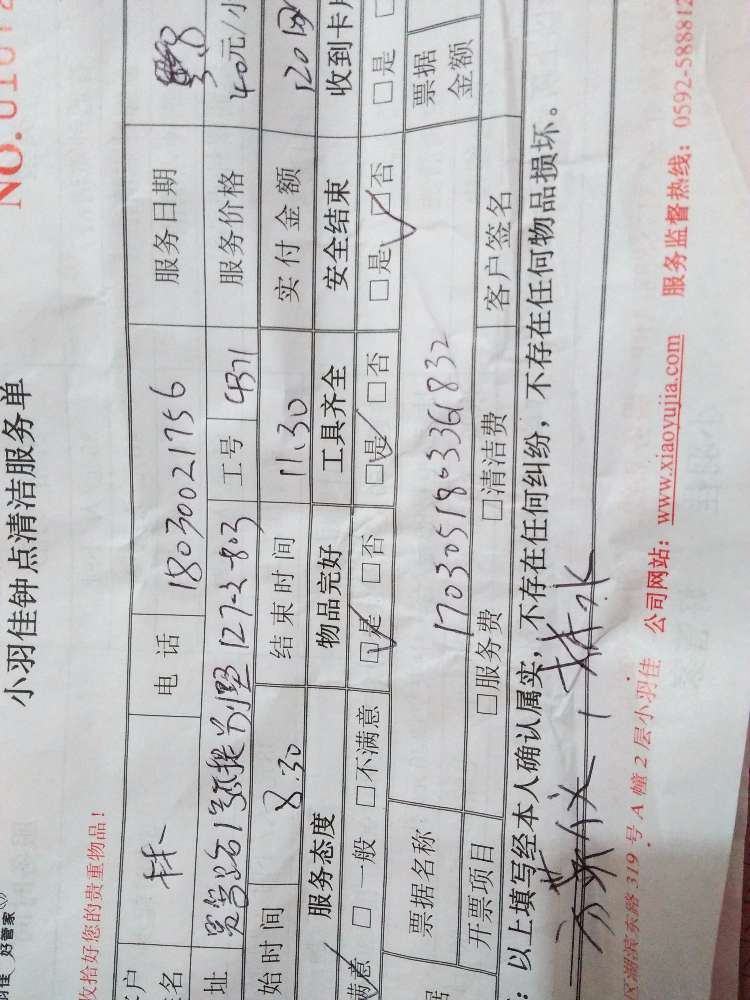 羽佳 好管家
NO.
小羽佳钟点清洁服务单
收拾好您的贵重物品！
客户 林 电话 18030021756 服务日期 3.8
签名
址 127-2-803 工号 4371 服务价格 40元/小
始时间 8.30 结束时间 11.30 实付金额 120
服务态度 物品完好 工具齐全 安全结束 收到卡片
满意 □ 一般 □不满意 □是 □否 □是 □否 □是 □否 □是
票据名称 1703051803361832 票据
金额
据 开票项目 □服务费 □清洁费 客户签名
：以上填写经本人确认属实，不存在任何纠纷，不存在任何物品损坏。
区湖滨东路 319 号 A 幢 2 层小羽佳 公司网站：www.xiaoyujia.com 服务监督热线：0592-588812